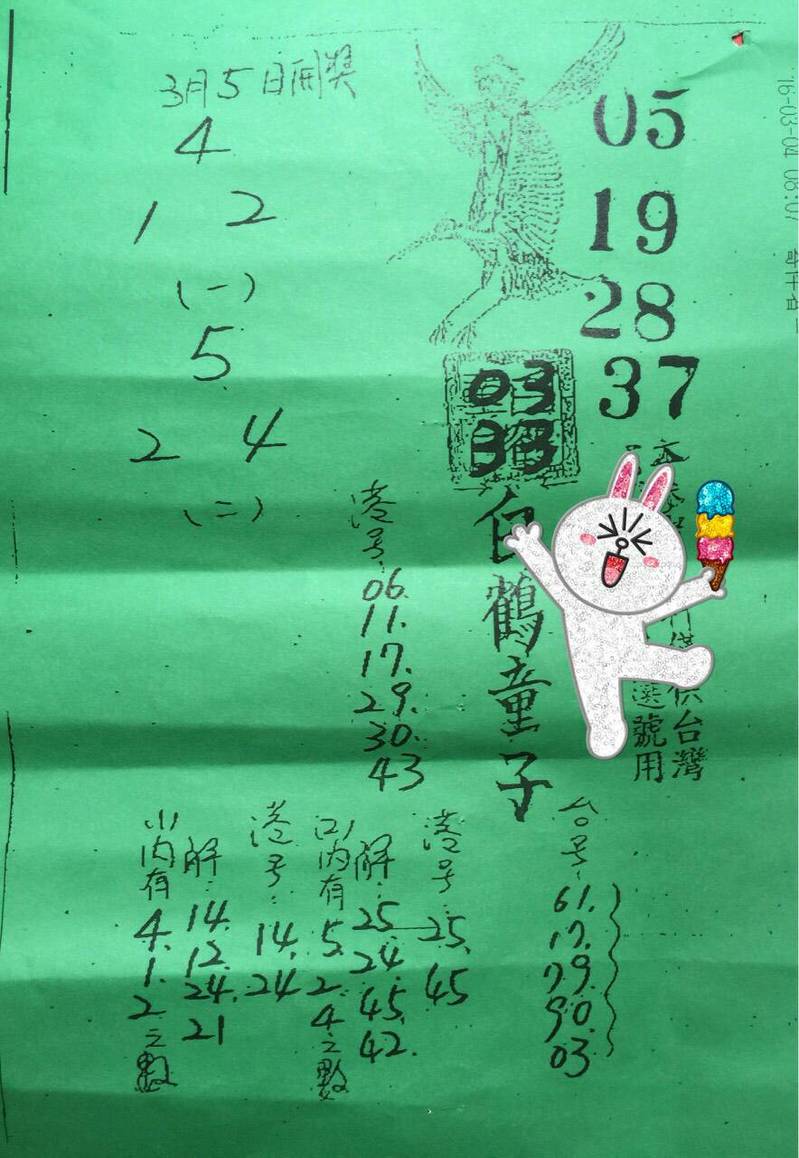 3月5日開獎
4
1 2
(一)
5
2 4
(二)
05
19
28
37
03
33
白鶴童子
供台灣
選號用
16-03-04 08:07
港号:
06.
11.
17.
29.
30.
43
台号:
61.
17.
79.
90.
03
港号:
25.
45
解:
25.
24.
45.
42.
(二)内有
5.
2.
4
之數
港号:
14.
24
解:
14.
12.
24.
21
(一)内有
4.
1.
2
之數